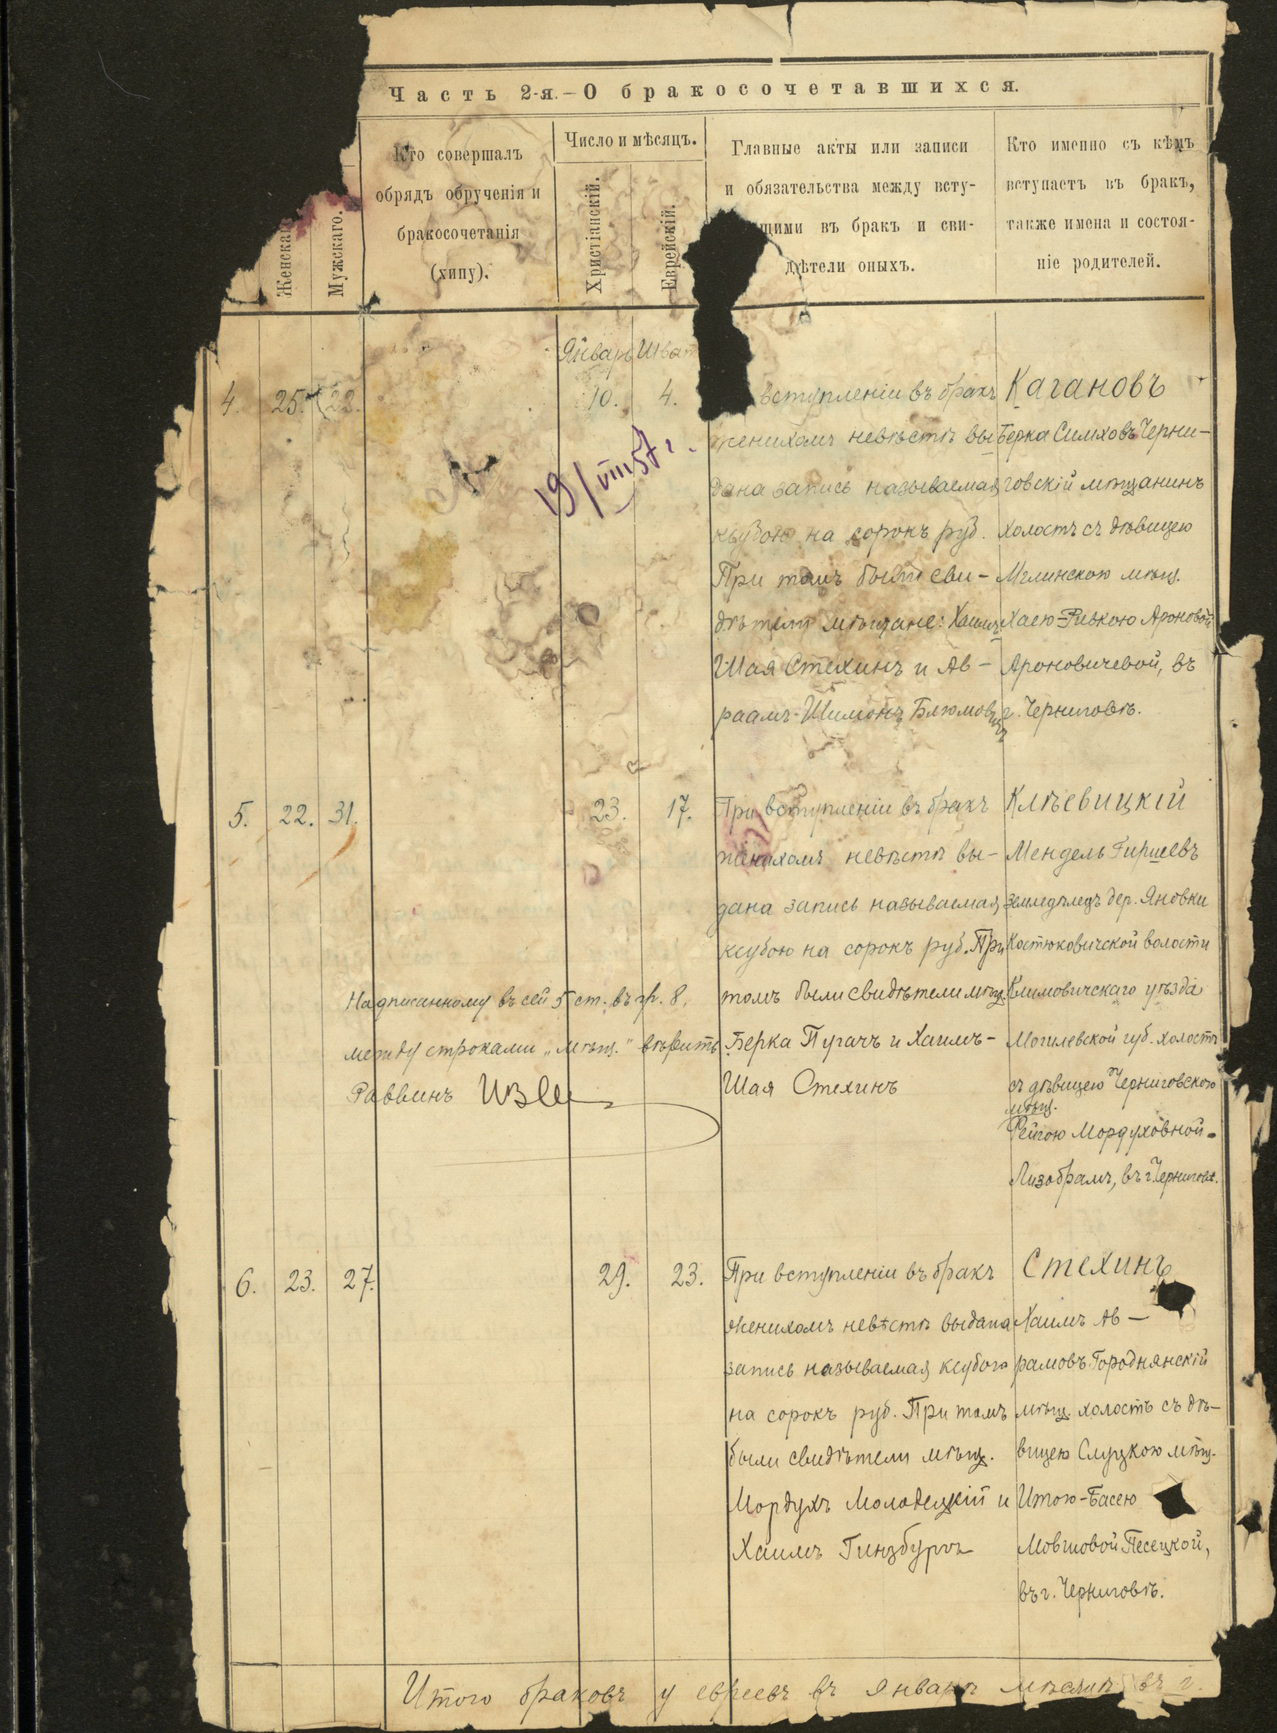 Часть 2-я.—О бракосочетавшихся.
Женска
Мужскаго.
Кто совершалъ
обрядъ обрученія и
бракосочетанія
(хипу).
Число и мѣсяцъ.
Христіанскій.
Еврейскій.
Главные акты или записи
и обязательства между всту-
щими въ бракъ и сви-
дѣтели оныхъ.
Кто именно съ кѣмъ
вступаетъ въ бракъ,
также имена и состоя-
ніе родителей.
Январь Шват
4. 25. 22. 10. 4.
19/VIII 57 г.
вступленіи въ бракъ
женихомъ невѣстѣ вы
дана запись называемая
ксубою на сорокъ руб.
При томъ были сви-
дѣтели мѣщане: Хаимъ
Шая Стехинъ и Ав-
раамъ-Шимонъ Блюмовичъ
Кагановъ
Берка Симховъ Черни-
говскій мѣщанинъ
холостъ съ дѣвицею
Мглинскою мѣщ.
Хаею-Ривкою Ароновой
Ароновичевой, въ
г. Черниговѣ.
5. 22. 31. 23. 17.
При вступленіи въ бракъ
женихомъ невѣстѣ вы-
дана запись называемая
ксубою на сорокъ руб. При
томъ были свидѣтели мѣщ.
Берка Пугачъ и Хаимъ-
Шая Стехинъ
Клѣевицкій
Мендель Гиршевъ
земледѣлецъ дер. Яновки
Костюковичской волости
Климовичскаго уѣзда
Могилевской губ. холостъ
съ дѣвицею Черниговскою
мѣщ.
Рейзою Мордуховной-
Лизобрамъ, въ г. Черниговѣ.
Надписанному въ сей 5 ст. въ гр. 8,
между строками „мѣщ." вѣрить
Раввинъ
6. 23. 27. 29. 23.
При вступленіи въ бракъ
женихомъ невѣстѣ выдана
запись называемая ксубою
на сорокъ руб. При томъ
были свидѣтели мѣщ.
Мордухъ Молодецкій и
Хаимъ Гинзбургъ
Стехинъ
Хаимъ Ав-
рамовъ Городнянскій
мѣщ. холостъ съ дѣ-
вицею Слуцкою мѣщ.
Итою-Басею
Мовшовой Песецкой,
въ г. Черниговѣ.
Итого браковъ у евреевъ въ январѣ мѣсяцѣ въ г.